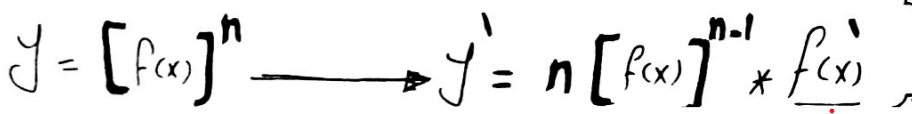 y = [f(x)]^n ⟶ y' = n [f(x)]^{n-1} * f(x)'